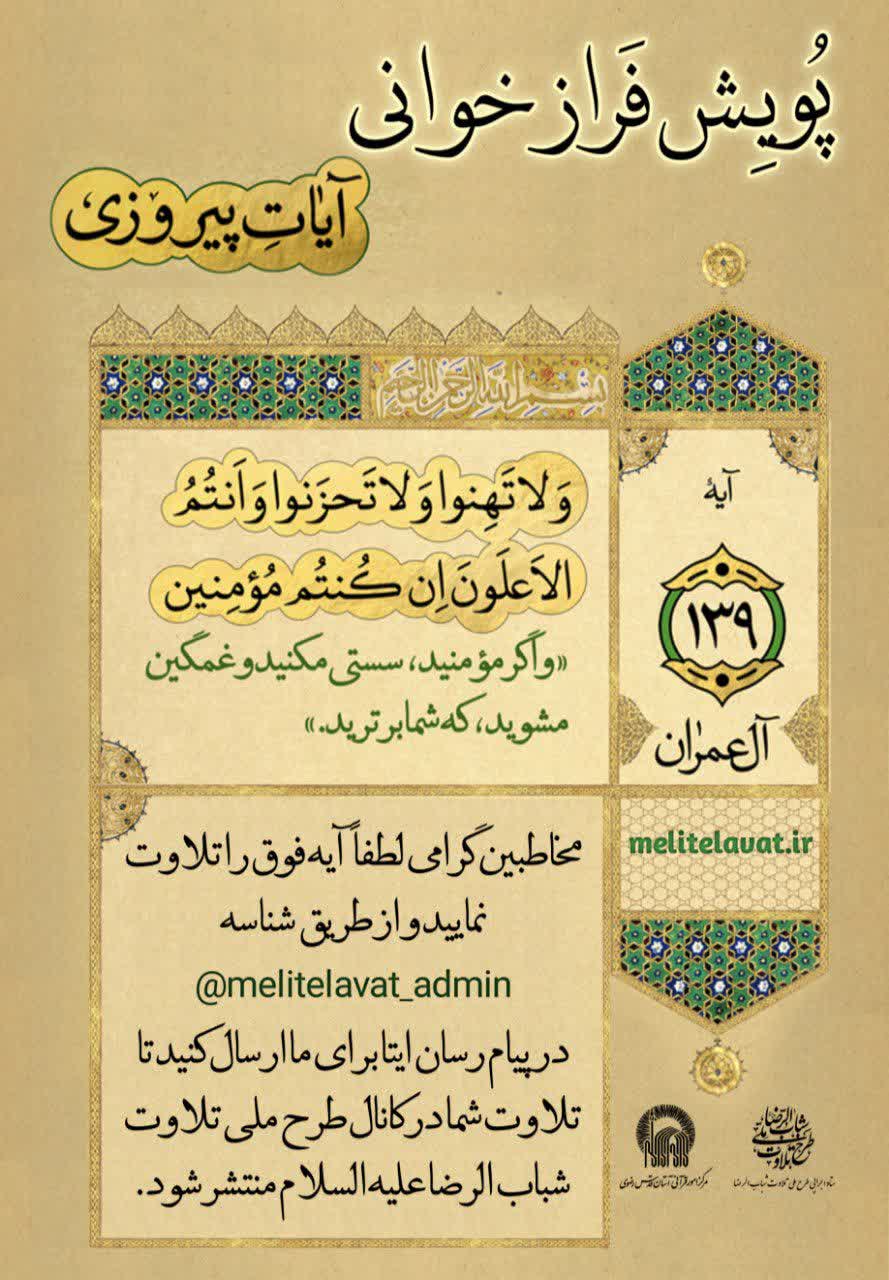 پُویِشِ فَرازخوانی
آیاتِ پیروزی
بِسْمِ اللهِ الرَّحْمٰنِ الرَّحیمِ
آیهٔ
۱۳۹
آل‌عمرٰان
وَ لا تَهِنوا وَ لا تَحزَنوا وَ اَنتُمُ
الاَعلَونَ اِن کُنتُم مُؤمِنین
«و اگر مؤمنید، سستی مکنید و غمگین
مشوید، که شما برترید.»
melitelavat.ir
مخاطبین گرامی لطفاً آیه فوق را تلاوت
نمایید و از طریق شناسه
@melitelavat_admin
در پیام رسان ایتا برای ما ارسال کنید تا
تلاوت شما در کانال طرح ملی تلاوت
شباب الرضا علیه السلام منتشر شود.
طرح ملی تلاوت شباب الرضا
مرکز امور قرآنی آستان قدس رضوی
ستاد اجرایی طرح ملی تلاوت شباب الرضا